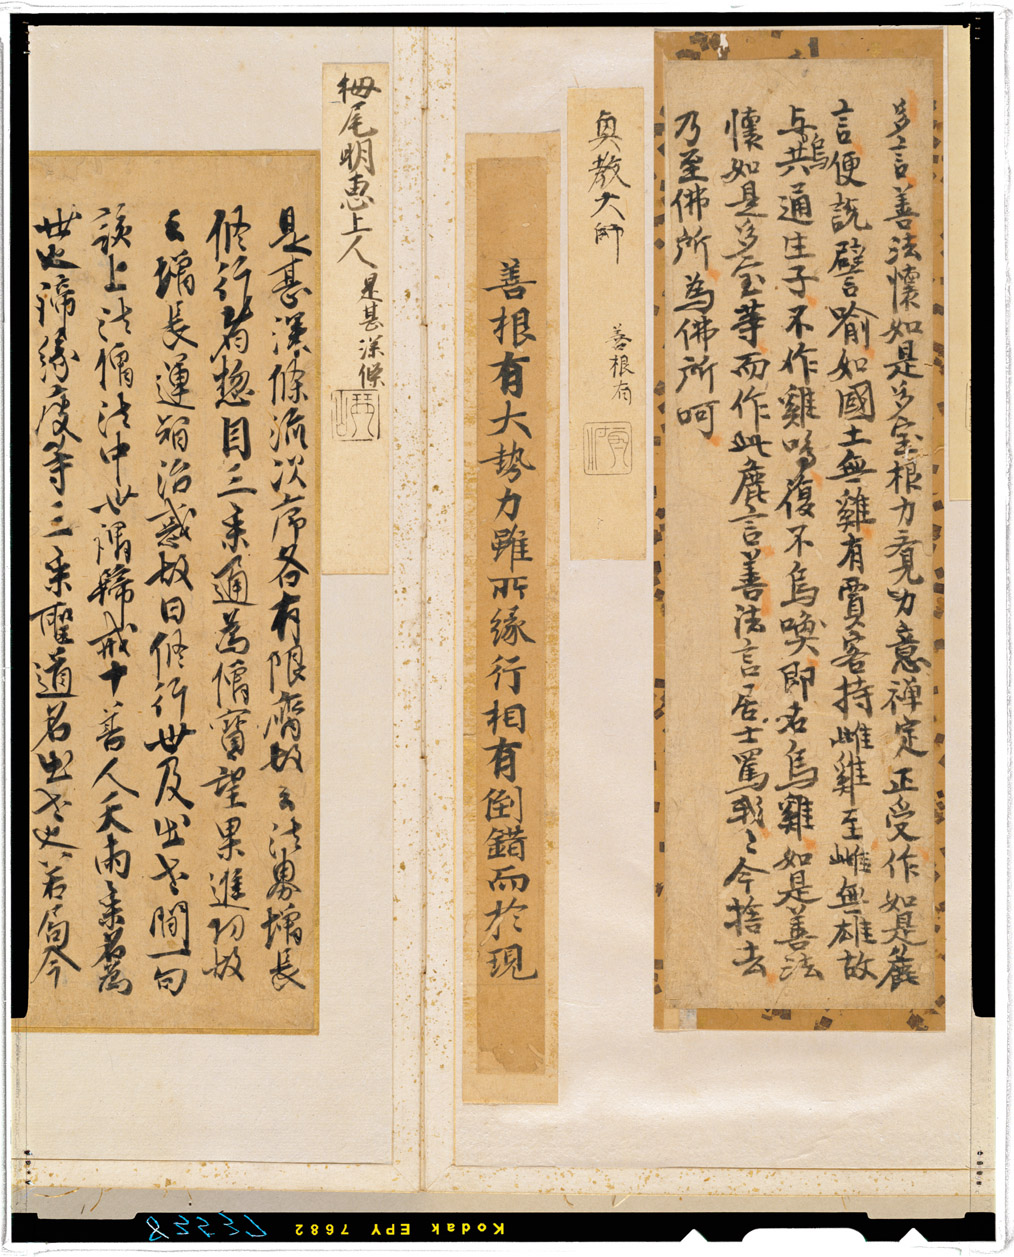 多言善法懷如是多室根力覺力意禪定正受作如是麁
言便說譬喻如國土無雞有賈客持雌雞至雌無雄故
与烏共通生子不作雞鳴復不烏喚即名烏雞如是善法
懷如是多室等而作此麁言善法言居士罵我〻今捨去
乃至佛所為佛所呵
興教大師 善根有
善根有大勢力雖所緣行相有倒錯而於現
栂尾明恵上人 是甚深條
是甚深條流次序各有限齊故云法界增長
修行者惣目三乘通為僧寶望果進功故
云增長運智治惑故曰修行世及出世間一句
該上法僧法中世謂歸戒十善人天兩乘名為
世也諦緣度等三乘聖道名出世也若局今
Kodak EPY 7682